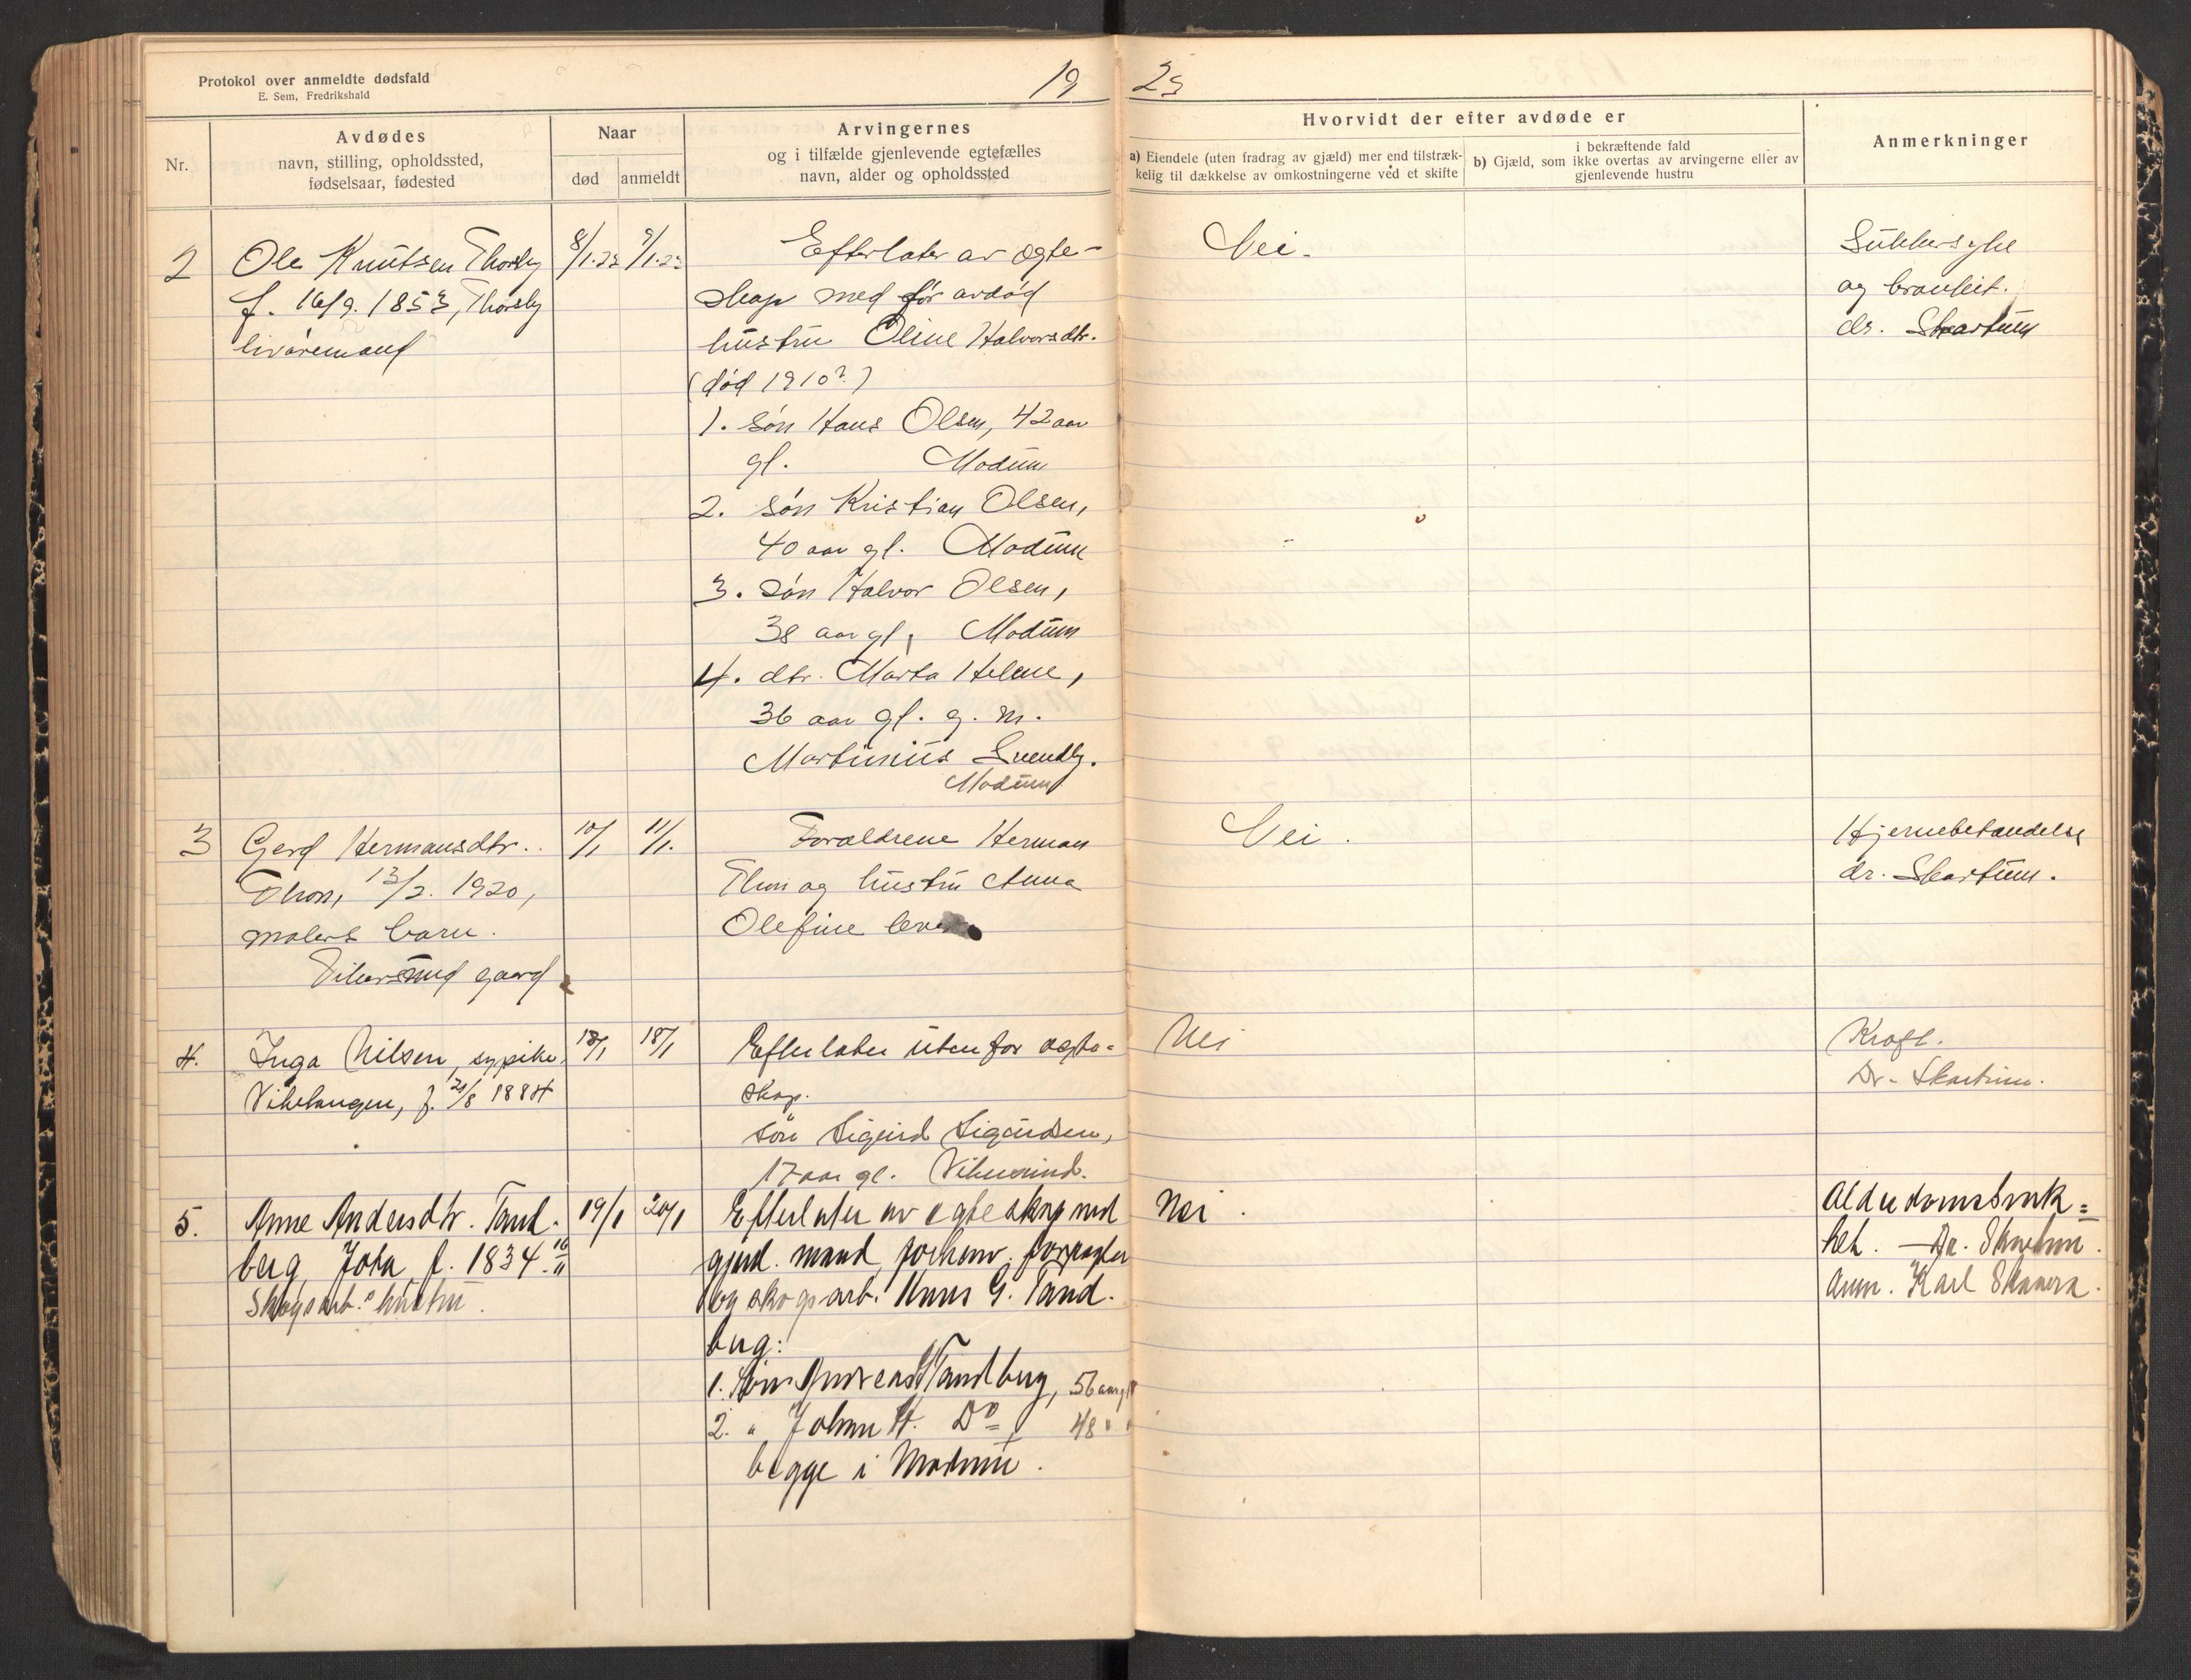 Protokol over anmeldte dødsfald
E. Sem, Fredrikshald
19 23
Nr.
Avdødes
navn, stilling, opholdssted,
fødselsaar, fødested
Naar
død anmeldt
Arvingernes
og i tilfælde gjenlevende egtefælles
navn, alder og opholdssted
Hvorvidt der efter avdøde er
a) Eiendele (uten fradrag av gjæld) mer end tilstræk-
kelig til dækkelse av omkostningerne ved et skifte
i bekræftende fald
b) Gjæld, som ikke overtas av arvingerne eller av
gjenlevende hustru
Anmerkninger
2
Ole Knutsen Thorsby
f. 16/9. 1853, Thorsby
livøremand
8/1.23 9/1.23
Efterlater av ægte-
skap med før avdød
hustru Oline Halvorsdtr.
(død 1910?)
1. søn Hans Olsen, 42 aar
gl. Modum
2. søn Kristian Olsen,
40 aar gl. Modum
3. søn Halvor Olsen,
38 aar gl, Modum
4. dtr. Marta Helene,
36 aar gl. g. m.
Martinius Svendby.
Modum
Nei.
Sukkersyke
og
dr. Skartum
3
Gerd Hermansdtr.
Thon, 13/2. 1920,
malers barn.
Vikersund gaard
10/1 11/1.
Forældrene Herman
Thon og hustru Anna
Olefine lever
Nei.
Hjernebetændelse
dr. Skartum.
4.
Inga Nilsen, sypike
Viketangen, f. 21/8 1884
18/1 18/1
Efterlater utenfor ægte-
skap.
søn Sigurd Sigurdsen,
17 aar gl. Vikersund.
Nei
Kræft.
Dr. Skartum.
5.
Anne Andersdtr. Tand-
berg, f. 1834 16/11
Skogsarb.s hustru.
19/1 20/1
Efterlater av egteskap med
gjenl. mand, forpagter
og skogsarb. Hans G. Tand-
berg:
1. Søn Andreas H Tandberg, 56 aar gl
2. " Johan H. Do, 48 " "
begge i Modum.
Nei.
Alderdomssvak-
het. — Dr. Skartum.
Anm. Karl